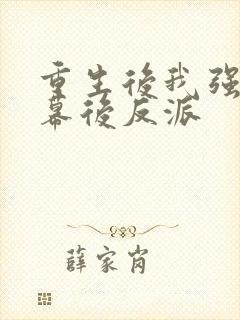 重生後我强
幕後反派
薛家肖